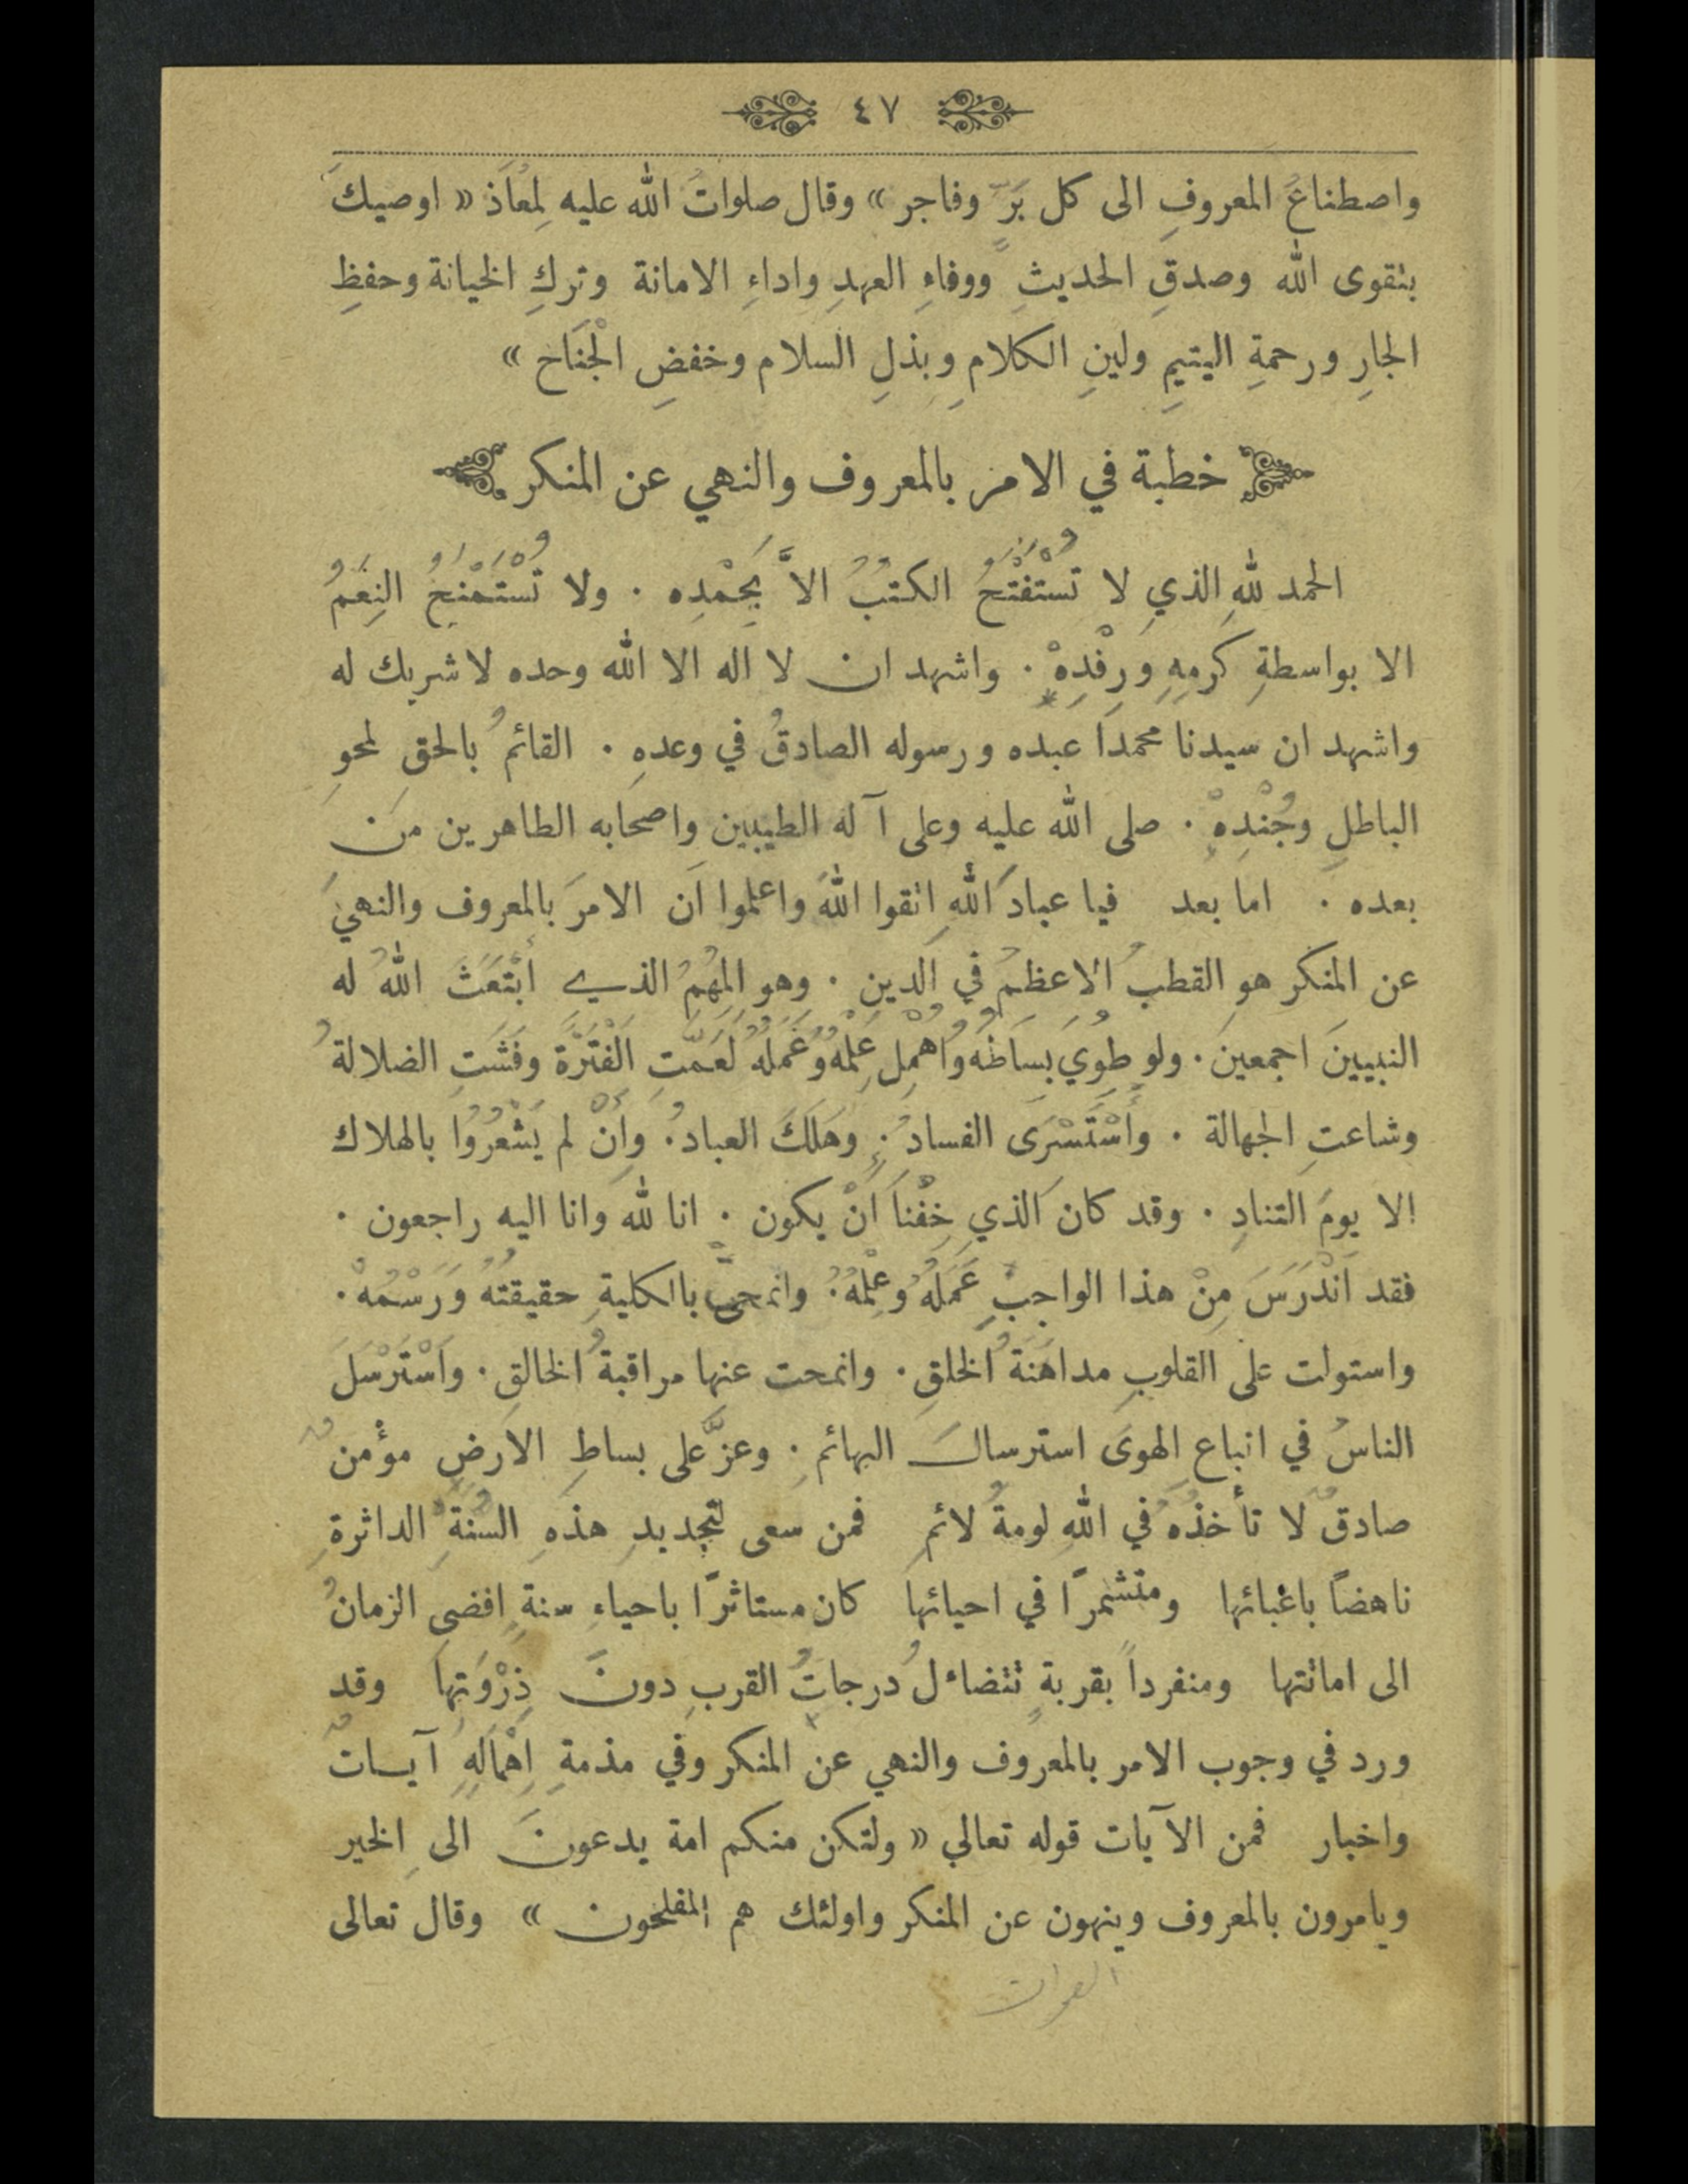 ٤٧
واصطناعُ المعروفِ الى كل بَرّ وفاجر » وقال صلوات الله عليه لِمُعَاذ « اوصيكَ
بتقوى الله وصدقِ الحديثِ ووفاءِ العهدِ واداءِ الامانة وتركِ الخيانة وحفظِ
الجارِ ورحمةِ اليتيمِ ولينِ الكلامِ وبذلِ السلام وخفضِ الْجَنَاح »
خطبة في الامر بالمعروف والنهي عن المنكر
الحمد للهِ الذي لا تُسْتَفْتَحُ الكتبُ الاَّ بِحَمْدِه . ولا تُسْتَمْنَحُ النِعَمُ
الا بواسطةِ كَرمِهِ وَرِفْدِهْ . واشهد ان لا اله الا الله وحده لا شريك له
واشهد ان سيدنا محمدا عبده ورسوله الصادقُ في وعدهِ . القائمُ بالحق لمحوِ
الباطلِ وجُنْدِهْ . صلى الله عليه وعلى آله الطيبين واصحابه الطاهرين من
بعده . اما بعد فيا عبادَ اللهِ اتقوا اللهَ واعلموا ان الامرَ بالمعروف والنهيَ
عن المنكر هو القطبُ الاعظمُ في الدينِ . وهو المُهِمُّ الذي أبْتَعَثَ اللهُ له
النبيينَ اجمعينَ . ولو طُوِيَ بِسَاطُهُ وَاُهْمِلَ عِلْمُهُ وَعَمَلُهُ لَعَمَّتِ الْفَتْرَةُ وفَشَتِ الضلالةُ
وشاعتِ الجهالة . وأَسْتَسْرَى الفسادُ . وهَلَكَ العبادُ . وإِنْ لم يَشْعُرُوا بالهلاك
الا يومَ التنادِ . وقد كان الذي خِفْنَا أَنْ يكون . انا لله وانا اليه راجعون .
فقد اَنْدَرَسَ مِنْ هذا الواجبِ عَمَلُهُ وعِلْمُهُ . وانمحىَّ بالكليةِ حقيقتُهُ وَرَسْمُهْ .
واستولت على القلوبِ مداهَنَةُ الخلقِ . وانمحت عنها مراقبةُ الخالقِ . وَاسْتَرْسَلَ
الناسُ في اتباعِ الهوَى استرسالَ البهائمِ . وعزَّ على بساطِ الارضِ مؤْمن
صادقٌ لا تأخذُهُ في اللهِ لومةُ لائمِ فمن سعى لتجديدِ هذهِ السُّنةِ الداثرةِ
ناهضاً باعْبائها ومتشمرًا في احيائها كان مستاثرًا باحياءِ سنةٍ افضى الزمانُ
الى اماتتها ومنفرداً بقربةٍ تتضاءلُ درجاتُ القربِ دونَ ذِرْوَتِها وقد
ورد في وجوب الامر بالمعروف والنهي عن المنكر وفي مذمةِ اِهْمَالِهِ آيات
واخبار فمن الآيات قوله تعالي « ولتكن منكم امة يدعونَ الى الخير
ويامرون بالمعروف وينهون عن المنكر واولئك هم المفلحون » وقال تعالى